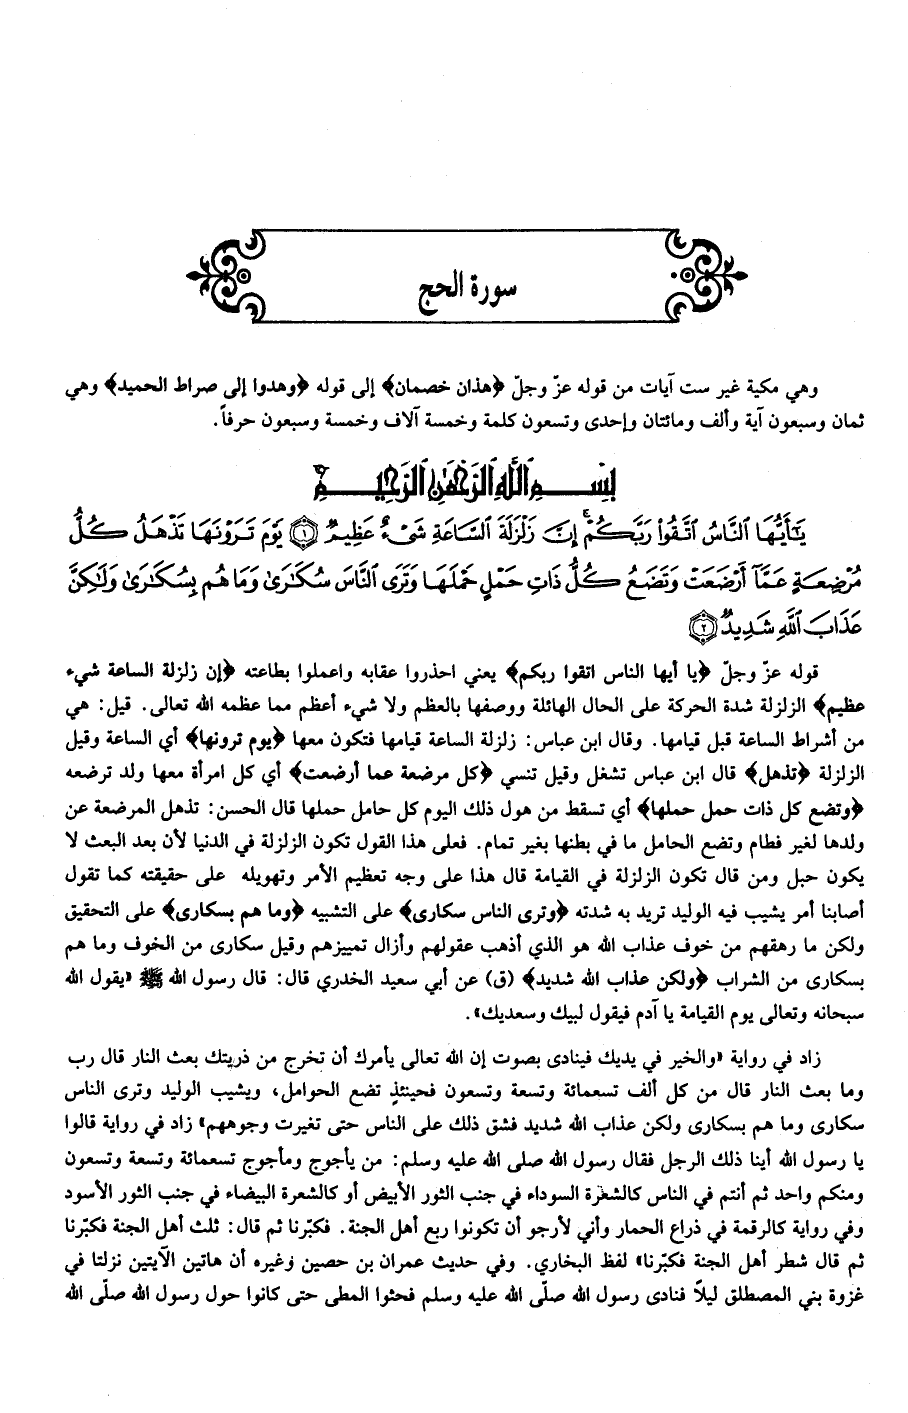 سورة الحج
وهي مكية غير ست آيات من قوله عزّ وجلّ ﴿هذان خصمان﴾ إلى قوله ﴿وهدوا إلى صراط الحميد﴾ وهي
ثمان وسبعون آية وألف ومائتان وإحدى وتسعون كلمة وخمسة آلاف وخمسة وسبعون حرفاً.
بِسْمِ اللَّهِ الرَّحْمَٰنِ الرَّحِيمِ
يَٰٓأَيُّهَا ٱلنَّاسُ ٱتَّقُوا۟ رَبَّكُمْ ۚ إِنَّ زَلْزَلَةَ ٱلسَّاعَةِ شَىْءٌ عَظِيمٌ ﴿١﴾ يَوْمَ تَرَوْنَهَا تَذْهَلُ كُلُّ
مُرْضِعَةٍ عَمَّآ أَرْضَعَتْ وَتَضَعُ كُلُّ ذَاتِ حَمْلٍ حَمْلَهَا وَتَرَى ٱلنَّاسَ سُكَٰرَىٰ وَمَا هُم بِسُكَٰرَىٰ وَلَٰكِنَّ
عَذَابَ ٱللَّهِ شَدِيدٌ ﴿٢﴾
قوله عزّ وجلّ ﴿يا أيها الناس اتقوا ربكم﴾ يعني احذروا عقابه واعملوا بطاعته ﴿إن زلزلة الساعة شيء
عظيم﴾ الزلزلة شدة الحركة على الحال الهائلة ووصفها بالعظم ولا شيء أعظم مما عظمه الله تعالى. قيل: هي
من أشراط الساعة قبل قيامها. وقال ابن عباس: زلزلة الساعة قيامها فتكون معها ﴿يوم ترونها﴾ أي الساعة وقيل
الزلزلة ﴿تذهل﴾ قال ابن عباس تشغل وقيل تنسي ﴿كل مرضعة عما أرضعت﴾ أي كل امرأة معها ولد ترضعه
﴿وتضع كل ذات حمل حملها﴾ أي تسقط من هول ذلك اليوم كل حامل حملها قال الحسن: تذهل المرضعة عن
ولدها لغير فطام وتضع الحامل ما في بطنها بغير تمام. فعلى هذا القول تكون الزلزلة في الدنيا لأن بعد البعث لا
يكون حبل ومن قال تكون الزلزلة في القيامة قال هذا على وجه تعظيم الأمر وتهويله على حقيقته كما تقول
أصابنا أمر يشيب فيه الوليد تريد به شدته ﴿وترى الناس سكارى﴾ على التشبيه ﴿وما هم بسكارى﴾ على التحقيق
ولكن ما رهقهم من خوف عذاب الله هو الذي أذهب عقولهم وأزال تمييزهم وقيل سكارى من الخوف وما هم
بسكارى من الشراب ﴿ولكن عذاب الله شديد﴾ (ق) عن أبي سعيد الخدري قال: قال رسول الله ﷺ «يقول الله
سبحانه وتعالى يوم القيامة يا آدم فيقول لبيك وسعديك».
زاد في رواية «والخير في يديك فينادى بصوت إن الله تعالى يأمرك أن تخرج من ذريتك بعث النار قال رب
وما بعث النار قال من كل ألف تسعمائة وتسعة وتسعون فحينئذٍ تضع الحوامل، ويشيب الوليد وترى الناس
سكارى وما هم بسكارى ولكن عذاب الله شديد فشق ذلك على الناس حتى تغيرت وجوههم» زاد في رواية قالوا
يا رسول الله أينا ذلك الرجل فقال رسول الله صلى الله عليه وسلم: من يأجوج ومأجوج تسعمائة وتسعة وتسعون
ومنكم واحد ثم أنتم في الناس كالشعرة السوداء في جنب الثور الأبيض أو كالشعرة البيضاء في جنب الثور الأسود
وفي رواية كالرقمة في ذراع الحمار وأني لأرجو أن تكونوا ربع أهل الجنة. فكبّرنا ثم قال: ثلث أهل الجنة فكبّرنا
ثم قال شطر أهل الجنة فكبّرنا» لفظ البخاري. وفي حديث عمران بن حصين وغيره أن هاتين الآيتين نزلتا في
غزوة بني المصطلق ليلاً فنادى رسول الله صلّى الله عليه وسلم فحثوا المطى حتى كانوا حول رسول الله صلّى الله